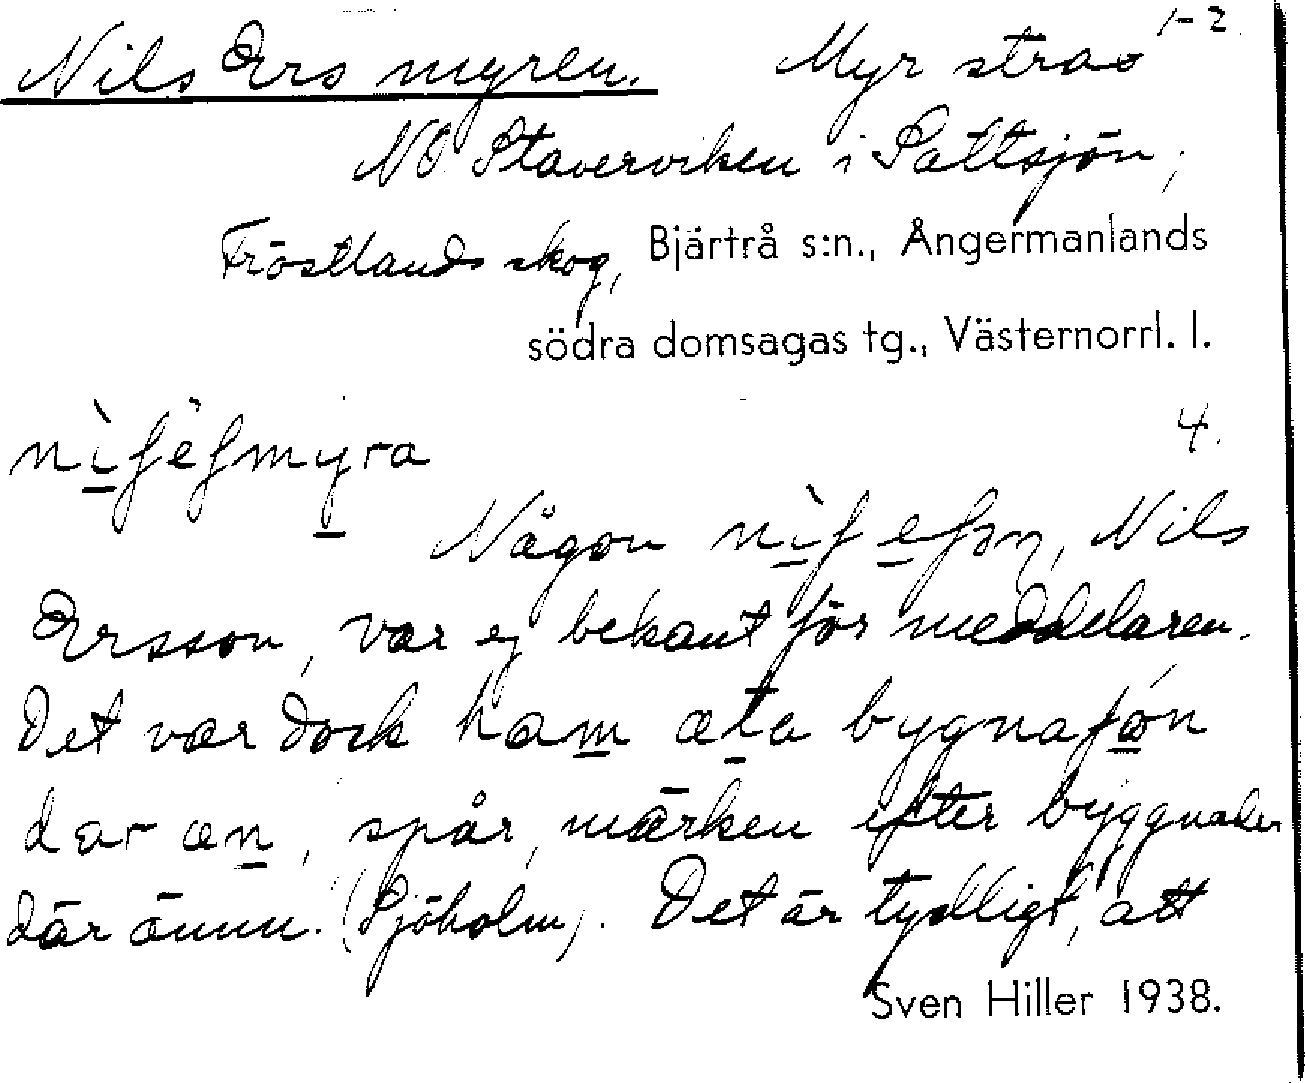 1-2
Nils Ers myren. Myr strax
NO Staverviken i Saltsjön,
Fröstlands skog, Bjärtrå s:n., Ångermanlands
södra domsagas tg., Västernorrl. l.
4.
Någon Nils
Ersson, var ej bekant för meddelaren.
Det var dock
spår, märken efter byggnader
där ännu. (Sjöholm). Det är tydligt, att
Sven Hiller 1938.